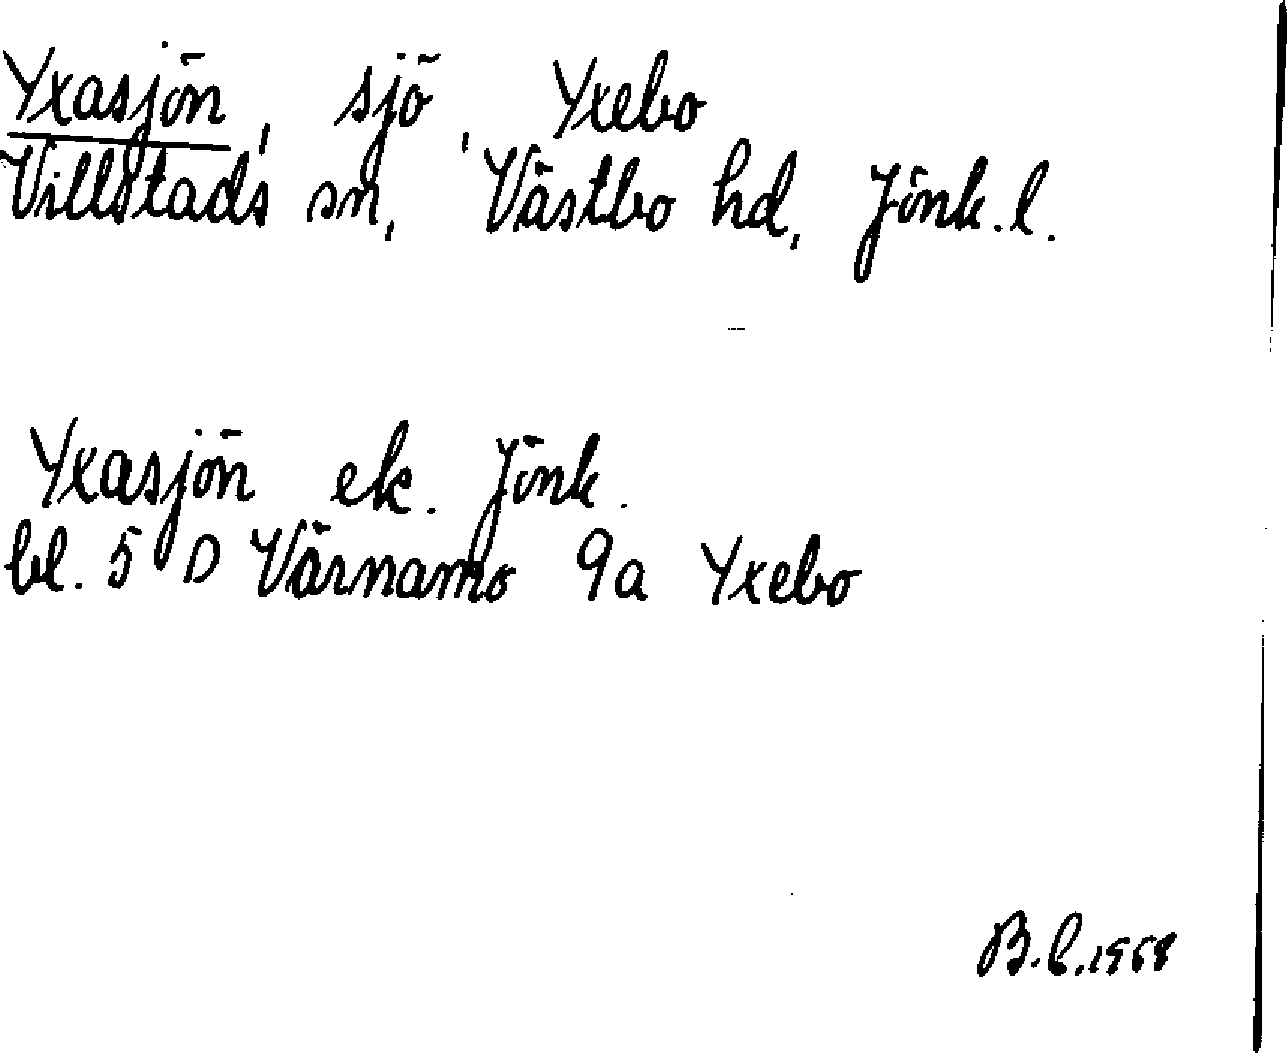 Yxasjön, sjö, Yxebo
Villstads sn, Västbo hd, Jönk.l.
Yxasjön ek. Jönk.
bl. 5 D Värnamo 9a Yxebo
B.l.1968